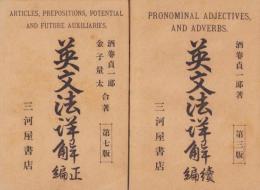 ARTICLES, PREPOSITIONS, POTENTIAL
AND FUTURE AUXILIARIES.
酒卷貞一郎
金子量太
合著
英文法詳解正編
第七版
三河屋書店
PRONOMINAL ADJECTIVES,
AND ADVERBS.
酒卷貞一郎著
英文法詳解續編
第三版
三河屋書店